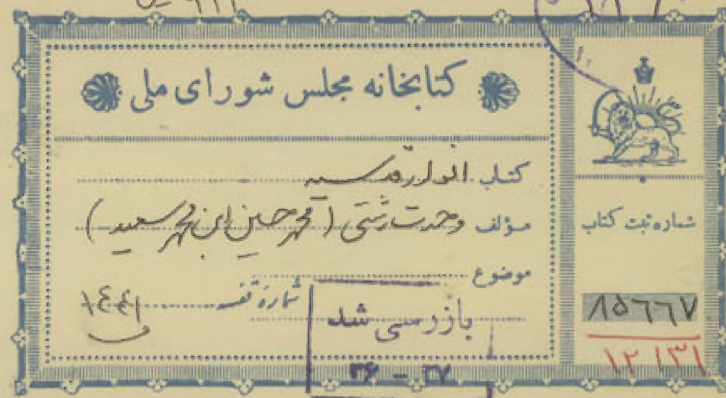 کتابخانه مجلس شورای ملی
کتاب انوار قدسیه
مؤلف وحدت رشتی (محمد حسین ابن محمد سعید)
موضوع
شماره قفسه ۱۴۴۱
بازرسی شد
۳۶ - ۳۷
شماره ثبت کتاب
۸۵۶۶۷
۱۲۱۳۱